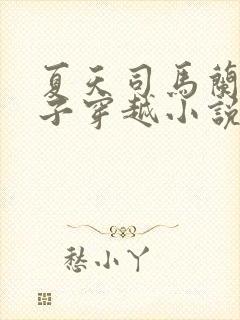 夏天司馬蘭
子穿越小說
愁小丫